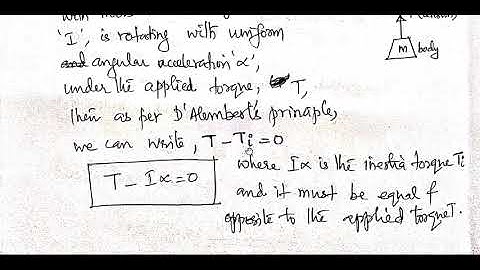 'I', is rotating with uniform
angular acceleration 'α',
under the applied torque, T,
then as per D'Alembert's prinaple,
we can write, T - Ti = 0
T - Iα = 0
where Iα is the inertia torque Ti
and it must be equal &
opposite to the applied torque T.
M
body